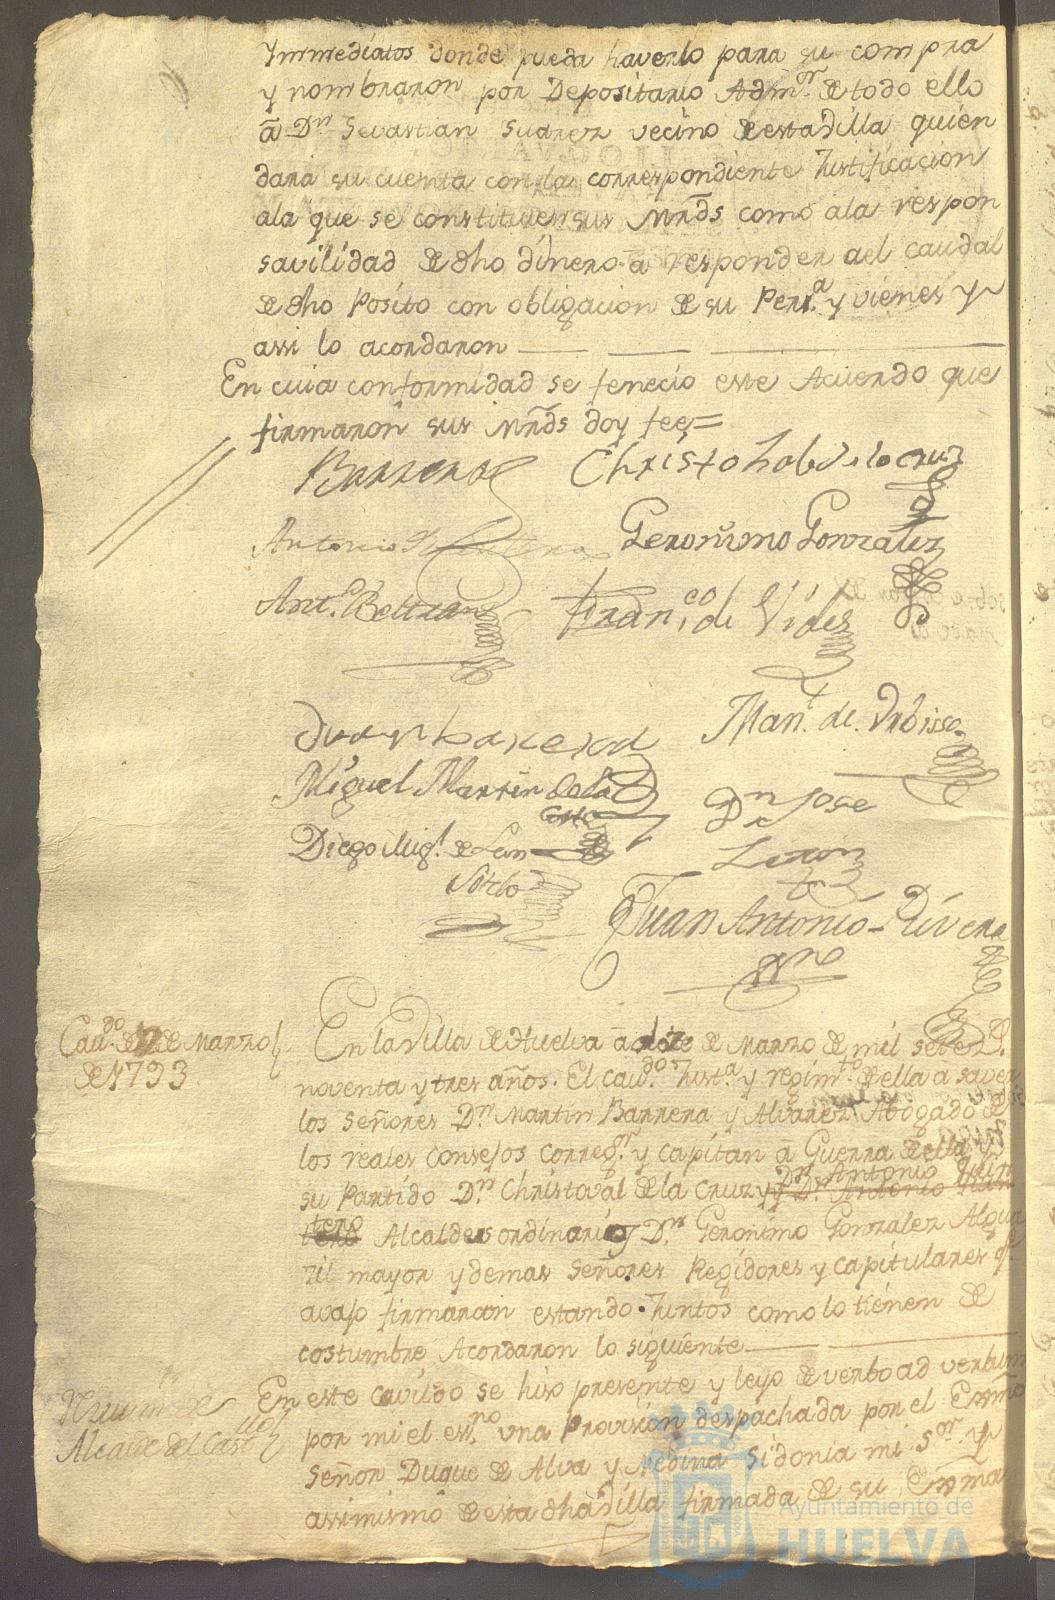 Ymmediatos donde pueda haverlo para su compra
y nombraron por Depositario Admor. de todo ello
a Dn Sevastian Suarez vecino de esta dilla quien
dara su cuenta con la correspondiente Justificacion
ala que se constituien sus Mrds como ala respon
savilidad de dho dinero a responder ael caudal
de dho Posito con obligacion de su Persa. y vienes y
assi lo acordaron
En cuia conformidad se fenecio este Acuerdo que
firmaron sus Mrds doy fee=
Barrera Christobal de la cruz
Antonio Geronimo Gonzalez
Anto. Beltran Franco. de Vides
Juan barrera Manl. de
Miguel Martin de la Dn Jose
Costa
Diego Migl. de Leon Leron
Sotelo
Juan Antonio Rivera
Cavdo. de 12 de Marzo
de 1793
En la Villa de Huelva a doze de Marzo de mil setesr.
noventa y tres años. El cavdo. Justa. y regimto. de ella a saver
los señores Dn Martin Barrera y Alvarez Abogado de
los reales consejos corregor. y capitan a Guerra de ella y
su Partido Dn Christoval de la Cruz y Dn Antonio Quin
tero Alcaldes ordinarios y Dn Geronimo Gonzalez Algua
zil mayor y demas señores Regidores y capitulares qe
avajo firmaran estando Juntos como lo tienen de
costumbre Acordaron lo siguiente
Alcaide del Castillo
En este cavildo se hiso presente y leyo de verbo ad verbum
por mi el essno. una Provision despachada por el Exsmo
Señor Duque de Alva y Medina Sidonia mi Sor. y
assimismo de esta dha dilla firmada de su Exma
Ayuntamiento de
HUELVA